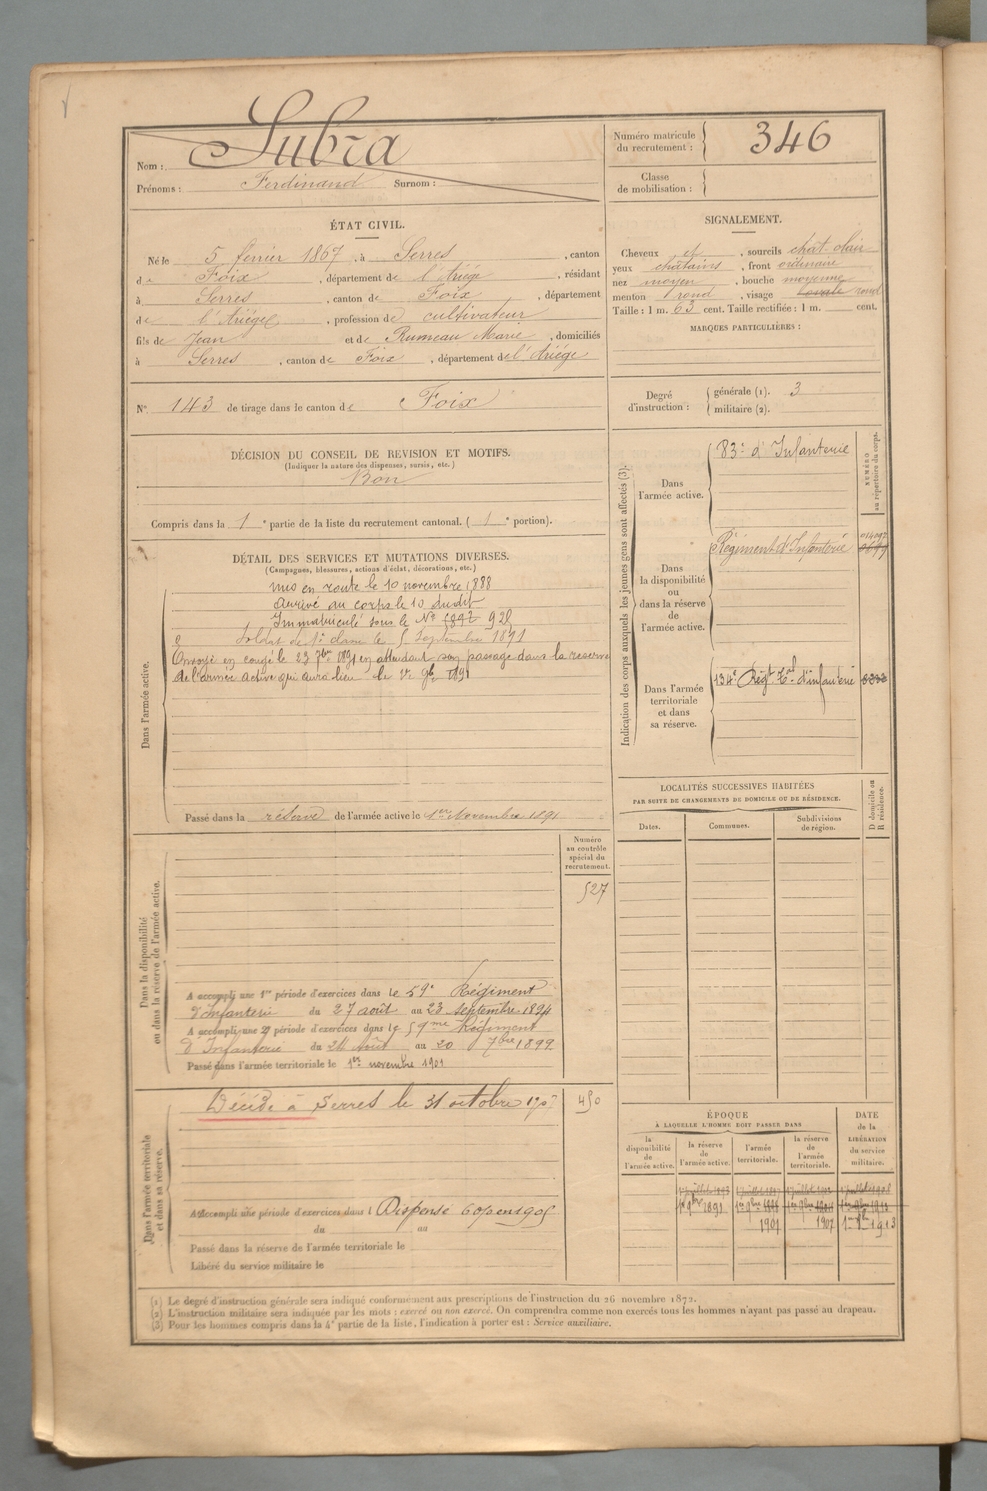 Nom : Subra
Prénoms : Ferdinand Surnom :
Numéro matricule du recrutement : 346
Classe de mobilisation :
ÉTAT CIVIL.
Né le 5 ferrier 1867, à Serres, canton
de Foix, département de l'Ariége, résidant
à Serres, canton de Foix, département
de l'Ariége, profession de cultivateur
fils de Jean et de Rumeau Marie, domiciliés
à Serres, canton de Foix, département de l'Ariége
N° 143 de tirage dans le canton de Foix
SIGNALEMENT.
Cheveux et, sourcils chat. clair
yeux châtains, front ordinaire
nez moyen, bouche moyenne
menton rond, visage ovale rond
Taille : 1 m. 63 cent. Taille rectifiée : 1 m. cent.
MARQUES PARTICULIÈRES :
Degré d'instruction : générale (1). 3
militaire (2).
DÉCISION DU CONSEIL DE REVISION ET MOTIFS.
(Indiquer la nature des dispenses, sursis, etc.)
Bon
Compris dans la 1e partie de la liste du recrutement cantonal. ( 1e portion).
DÉTAIL DES SERVICES ET MUTATIONS DIVERSES.
(Campagnes, blessures, actions d'éclat, décorations, etc.)
Dans l'armée active.
mis en route le 10 novembre 1888
Arrivé au corps le 10 dudit
Immatriculé sous le N° 928
Soldat de 1e classe le 5 Septembre 1891
Envoyé en congé le 23 7bre 1891 en attendant son passage dans la reserve
de l'armée active qui aura lieu le 1er 9bre 1891
Passé dans la réserve de l'armée active le 1er Novembre 1891
Indication des corps auxquels les jeunes gens sont affectés (3).
NUMÉRO au répertoire du corps.
Dans l'armée active.
83e d'Infanterie
Dans la disponibilité ou dans la réserve de l'armée active.
Régiment d'Infanterie
Dans l'armée territoriale et dans sa réserve.
134e Régt tal d'infanterie
LOCALITÉS SUCCESSIVES HABITÉES
PAR SUITE DE CHANGEMENTS DE DOMICILE OU DE RÉSIDENCE.
Dates. Communes. Subdivisions de région. D domicile ou R résidence.
Dans la disponibilité ou dans la réserve de l'armée active.
Numéro au contrôle spécial du recrutement.
527
A accompli une 1re période d'exercices dans le 59e Régiment
d'Infanterie du 27 août au 23 septembre 1894
A accompli une 2e période d'exercices dans le 59me Régiment
d'Infanterie du 24 Août au 20 7bre 1899
Passé dans l'armée territoriale le 1er novembre 1901
Dans l'armée territoriale et dans sa réserve.
Décédé à Serres le 31 octobre 1907
450
A accompli une période d'exercices dans l Dispensé 60 pens 1905
du au
Passé dans la réserve de l'armée territoriale le
Libéré du service militaire le
ÉPOQUE
À LAQUELLE L'HOMME DOIT PASSER DANS
la disponibilité de l'armée active.
la réserve de l'armée active.
l'armée territoriale.
la réserve de l'armée territoriale.
DATE de la LIBÉRATION du service militaire.
1er 9bre 1891
1901
1907
1er 9bre 1913
(1) Le degré d'instruction générale sera indiqué conformément aux prescriptions de l'instruction du 26 novembre 1872.
(2) L'instruction militaire sera indiquée par les mots : exercé ou non exercé. On comprendra comme non exercés tous les hommes n'ayant pas passé au drapeau.
(3) Pour les hommes compris dans la 4e partie de la liste, l'indication à porter est : Service auxiliaire.